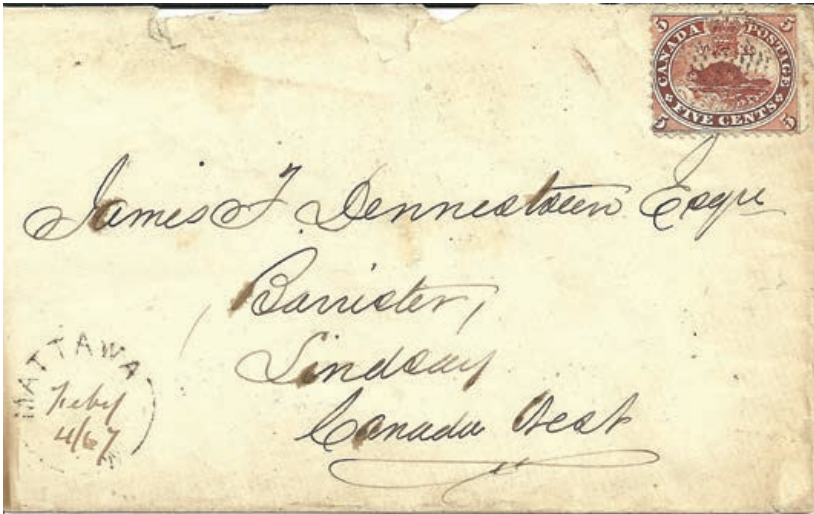 5 5
CANADA POSTAGE
FIVE CENTS
5 5
James F. Dennestoun Esqre
Barrister,
Lindsay
Canada West
MATTAWA
Feby
4/67